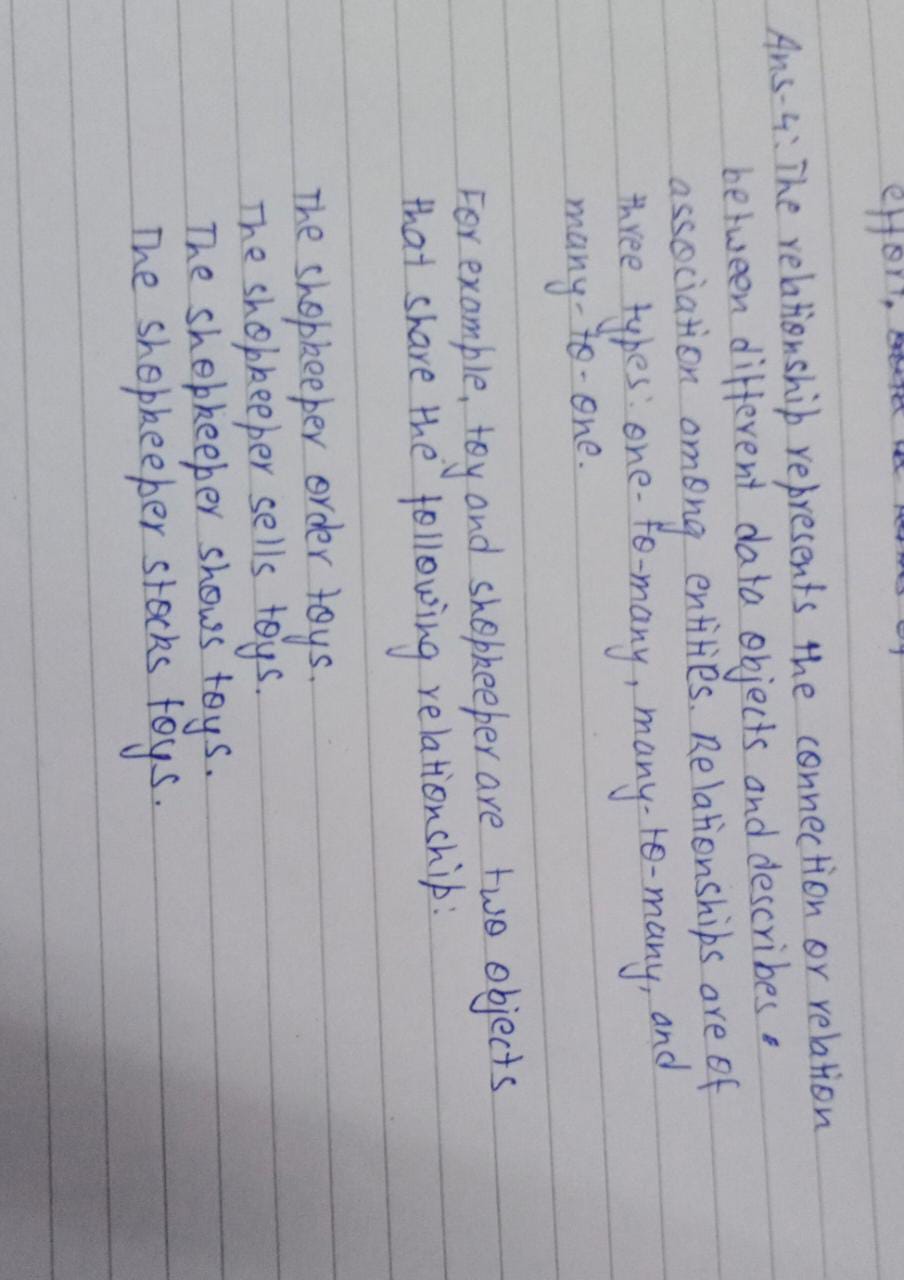 effort,
Ans-4: The relationship represents the connection or relation
between different data objects and describes
association among entities. Relationships are of
three types: one-to-many, many-to-many, and
many-to-one.
For example, toy and shopkeeper are two objects
that share the following relationship:
The shopkeeper order toys.
The shopkeeper sells toys.
The shopkeeper shows toys.
The shopkeeper stocks toys.